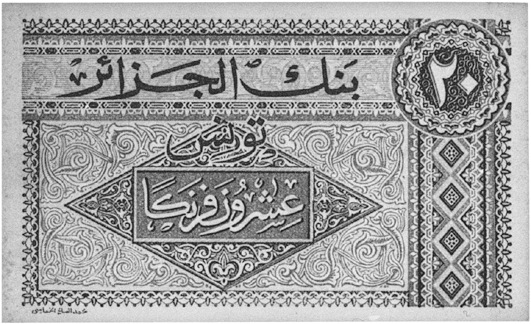 بنك الجزائر
٢٠
تونس
عشرون فرنكا